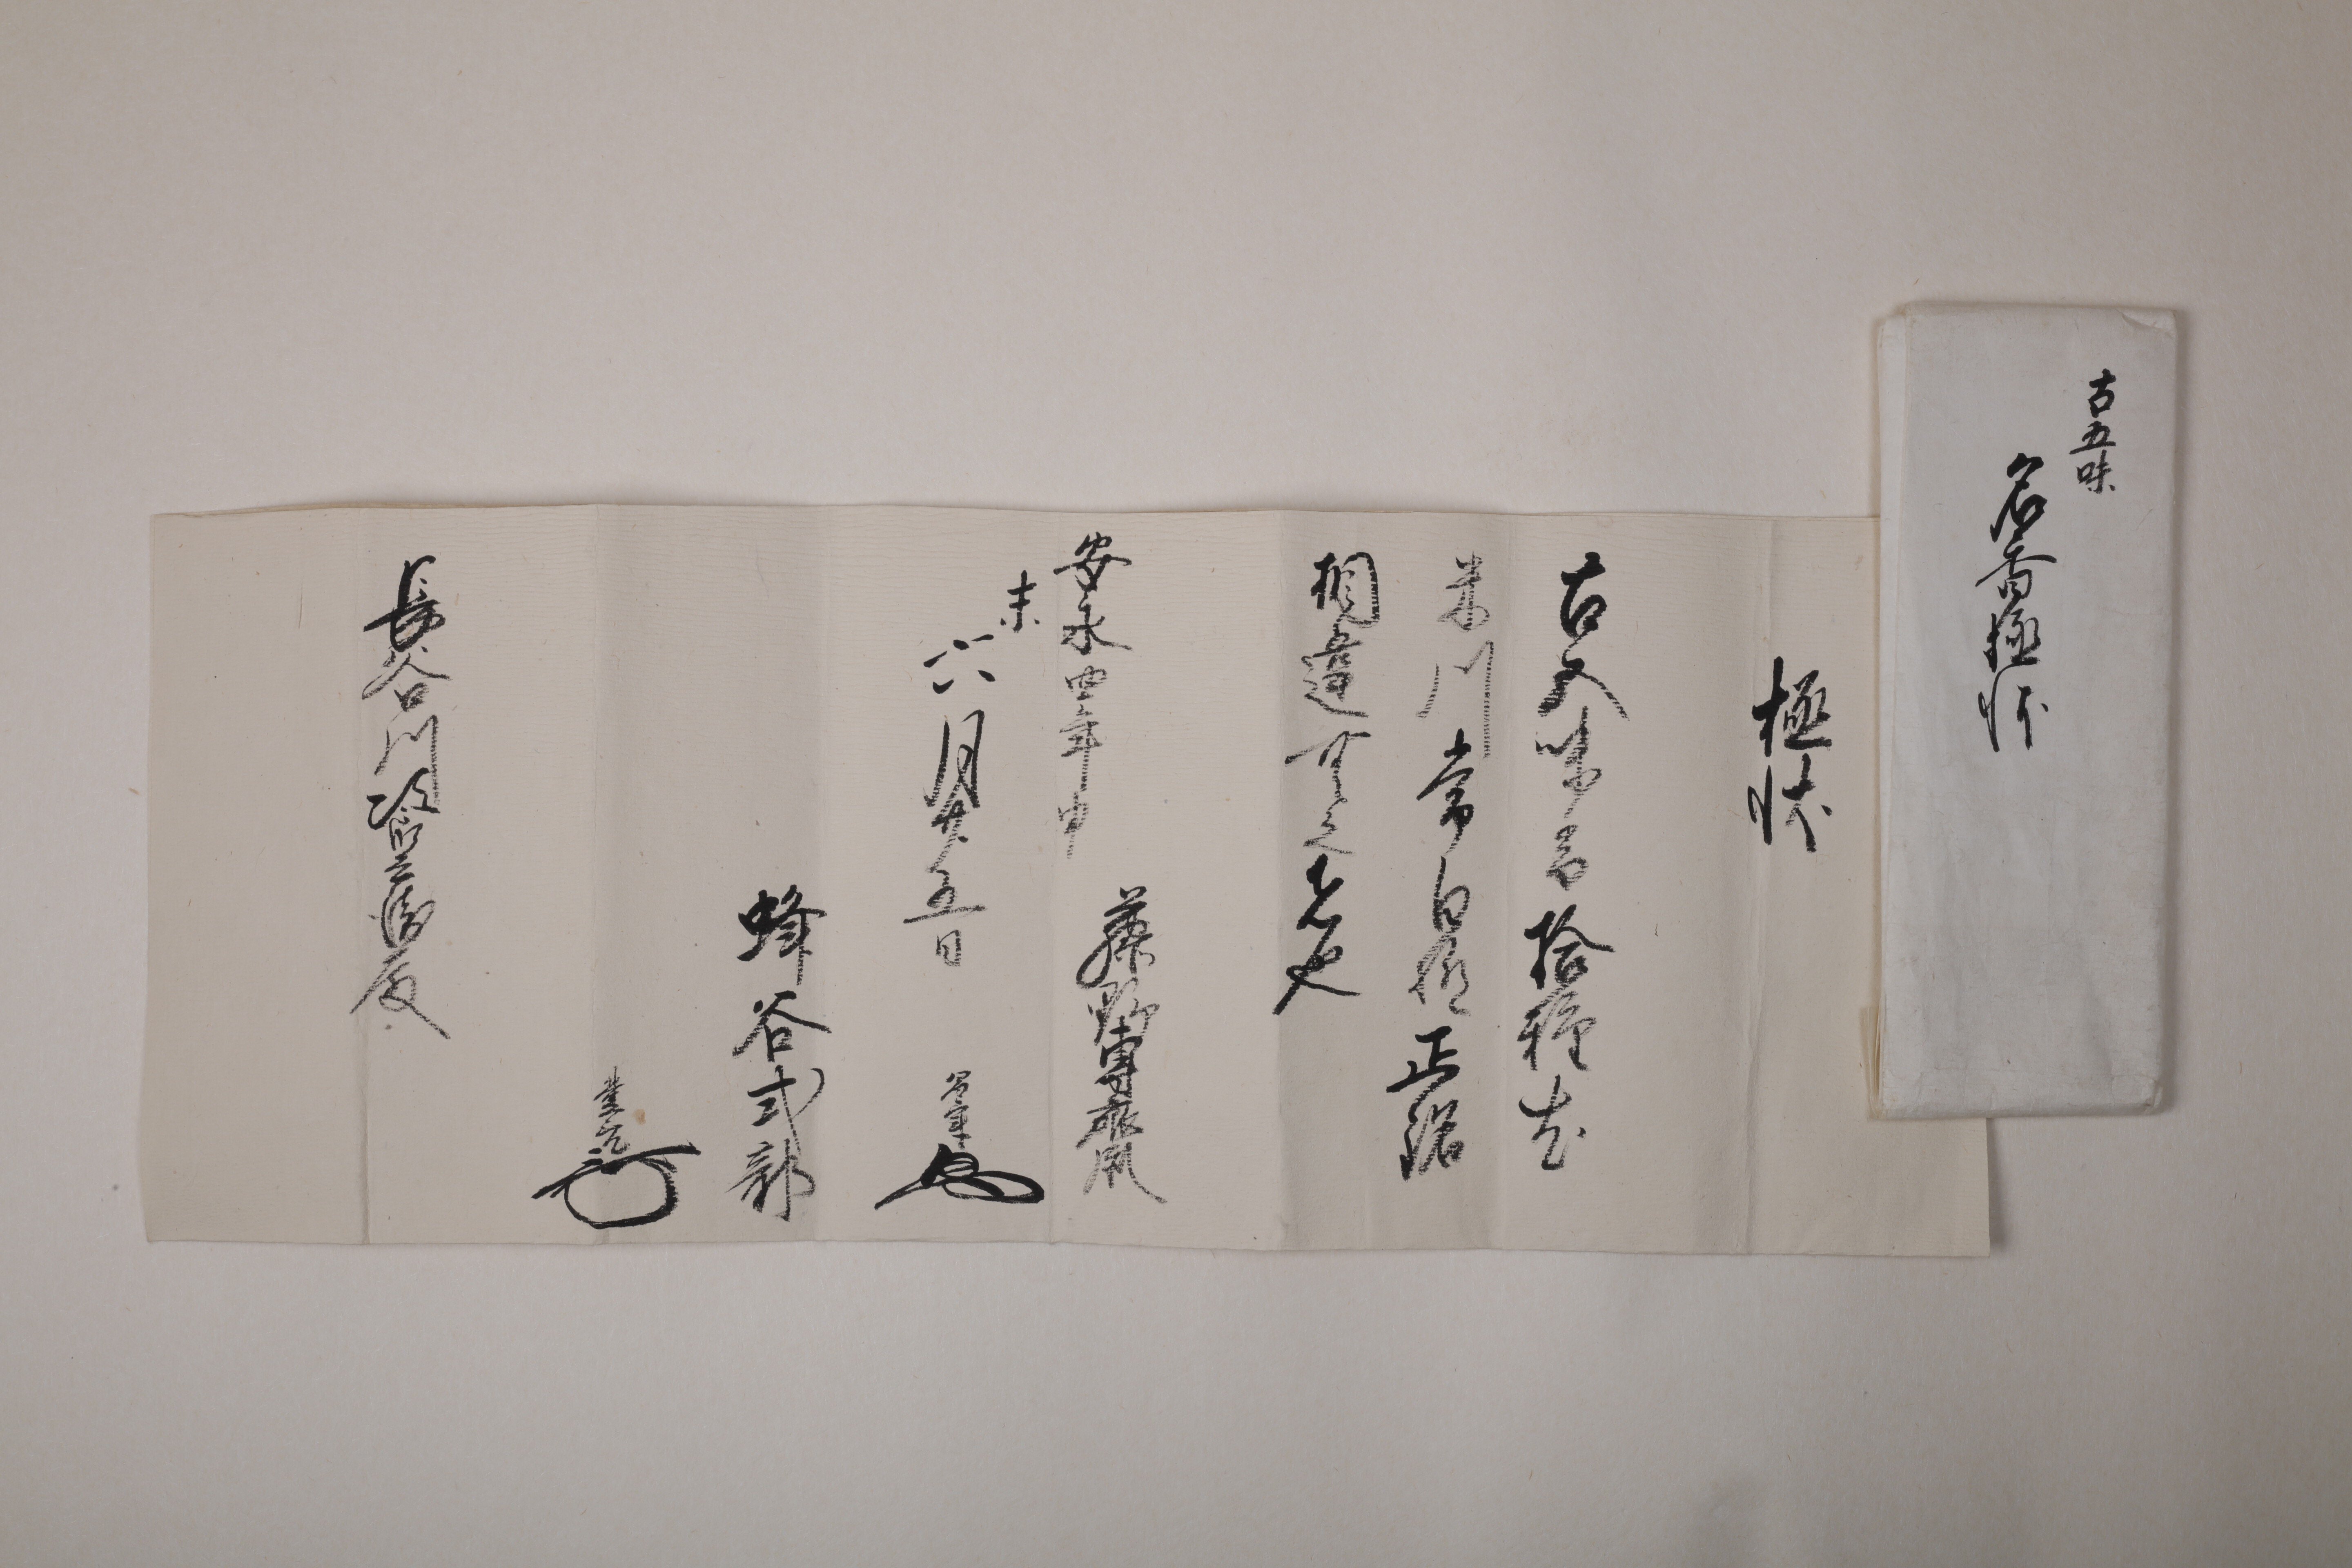 古五味
名香極状
極状
古五味名香拾種者
米川常白極正銘
相違無之者也
安永四年申
未六月廿五日
藤野専齋
蜂谷式部
長谷川次郎兵衛殿